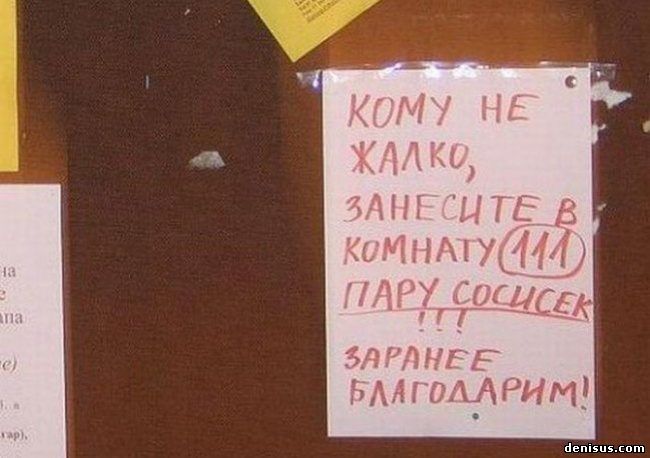 КОМУ НЕ
ЖАЛКО,
ЗАНЕСИТЕ В
КОМНАТУ 111
ПАРУ СОСИСЕК
!!!
ЗАРАНЕЕ
БЛАГОДАРИМ!
denisus.com